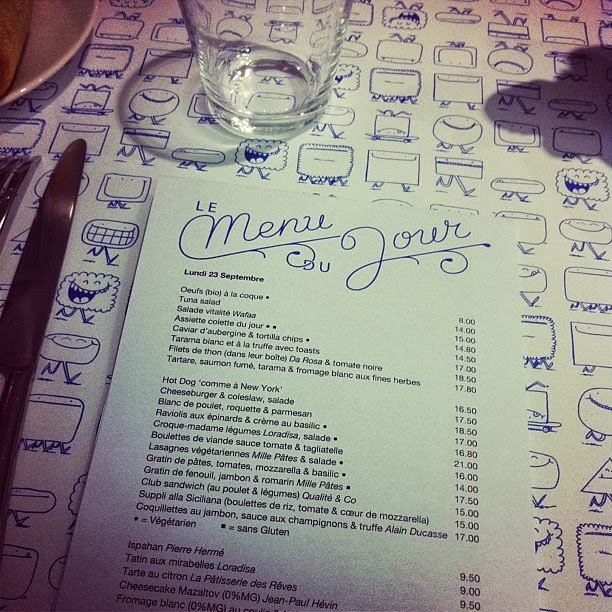 LE Menu DU Jour
Lundi 23 Septembre
Oeufs (bio) à la coque • 8.00
Tuna salad 14.00
Salade vitalité Wafaa 15.00
Assiette colette du jour • ▪ 14.80
Caviar d'aubergine & tortilla chips • 14.50
Tarama blanc et à la truffe avec toasts 17.00
Filets de thon (dans leur boîte) Da Rosa & tomate noire 18.50
Tartare, saumon fumé, tarama & fromage blanc aux fines herbes 17.80
Hot Dog 'comme à New York' 16.50
Cheeseburger & coleslaw, salade 17.50
Blanc de poulet, roquette & parmesan 18.50
Raviolis aux épinards & crème au basilic • 17.00
Croque-madame légumes Loradisa, salade • 16.80
Boulettes de viande sauce tomate & tagliatelle 21.00
Lasagnes végétariennes Mille Pâtes & salade • 16.00
Gratin de pâtes, tomates, mozzarella & basilic • 14.00
Gratin de fenouil, jambon & romarin Mille Pâtes ▪ 17.50
Club sandwich (au poulet & légumes) Qualité & Co 15.00
Suppli alla Siciliana (boulettes de riz, tomate & cœur de mozzarella) 15.00
Coquillettes au jambon, sauce aux champignons & truffe Alain Ducasse 17.00
• = Végétarien ▪ = sans Gluten
Ispahan Pierre Hermé 9.50
Tatin aux mirabelles Loradisa 9.00
Tarte au citron La Pâtisserie des Rêves 9.00
Cheesecake Mazaltov (0%MG) Jean-Paul Hévin 9.50
Fromage blanc (0%MG) au